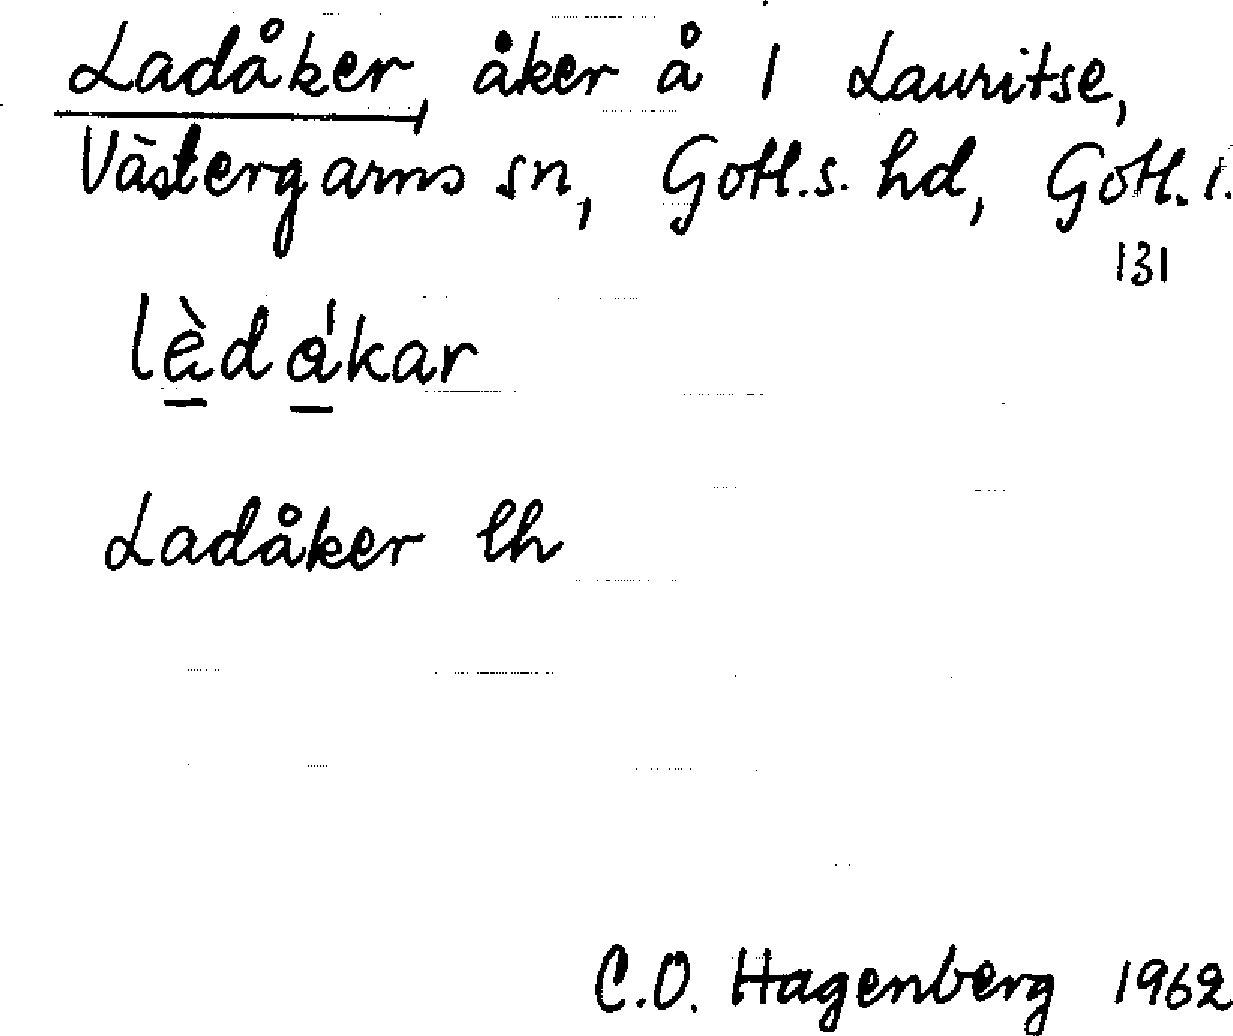 Ladåker, åker å 1 Lauritse,
Västergarns sn, Gotl.s. hd, Gotl. l.
131
lèdákar
Ladåker lh
C.O. Hagenberg 1962